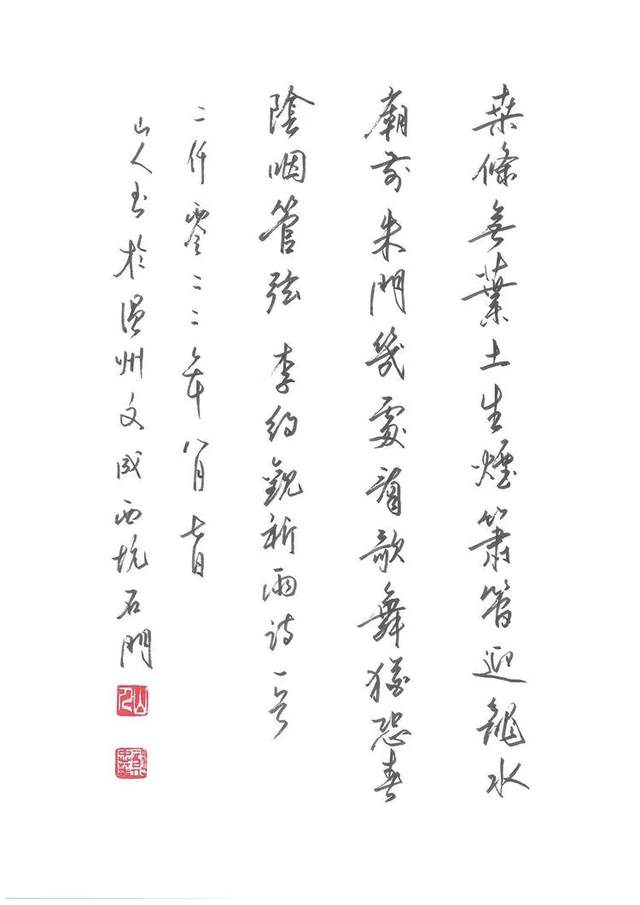 桑條無葉土生煙簫管迎龍水
廟前朱門幾處看歌舞猶恐春
陰咽管弦 李約觀祈雨詩一首
二仟零二二年八月七日
山人書於溫州文成西坑石門
山人